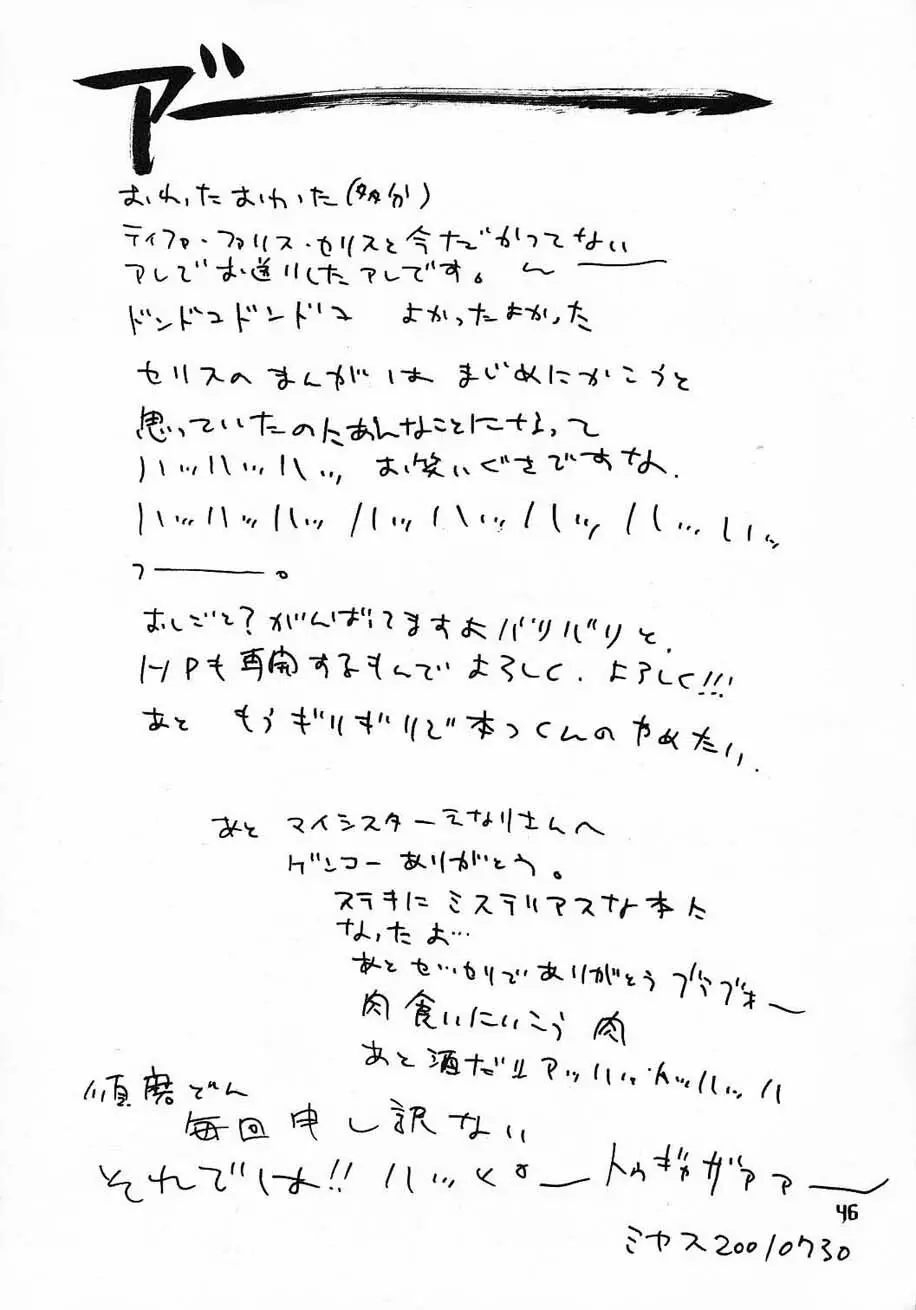 ア゛ー
おわったおわった(多分)
ティファ・ファリス・セリスと今だかつてない
アレでお送りしたアレです。
ドンドコドンドコ よかったよかった
セリスのまんがは まじめにかこうと
思っていたのにあんなことになって
ハッハッハッ お笑いぐさですな.
ハッハッハッハッハッハッハッハッ
フー。
おしごと?がんばってますよバリバリと.
HPも再開するもんで よろしく.よろしく!!!
あと もうギリギリで本つくんのやめたい.
あと マイシスターえなりさんへ
ゲンコーありがとう。
ステキにミステリアスな本に
なったよ…
ありがとう
肉食いにいこう 肉
あと酒だ!! アッハッハッハッハ
順磨どん
毎回申し訳ない
それでは!!
トゥギャザァァー
46
ミヤス20010730